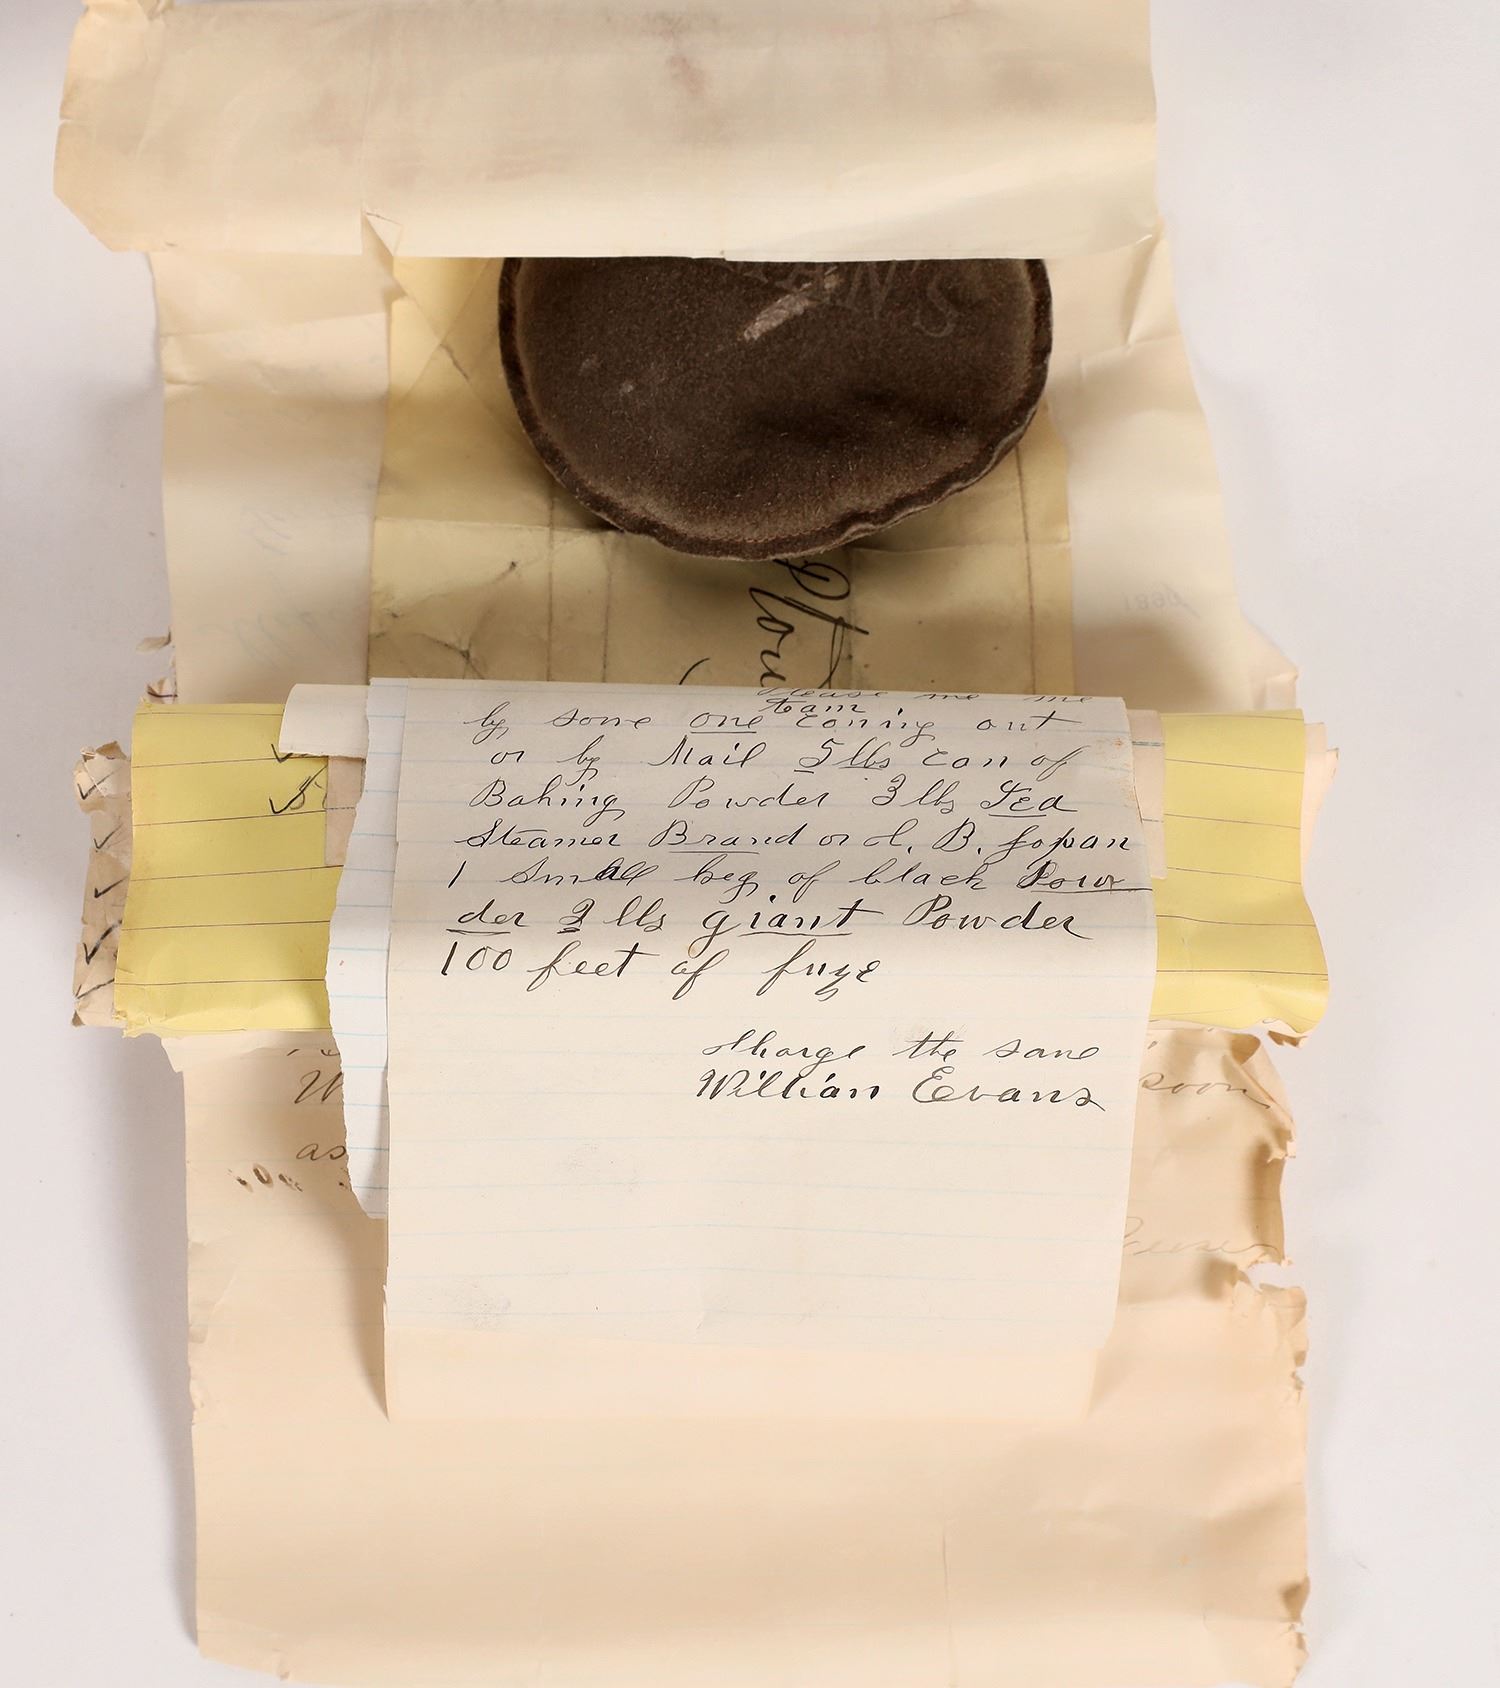 Plou
Please me me
team
by some one coming out
or by Mail 5 lbs can of
Baking Powder 3 lbs Tea
Steamer Brand or J. B. Japan
1 Small keg of black Pow
der 2 lbs giant Powder
100 feet of fuze
Charge the same
William Evans
W
soon
as